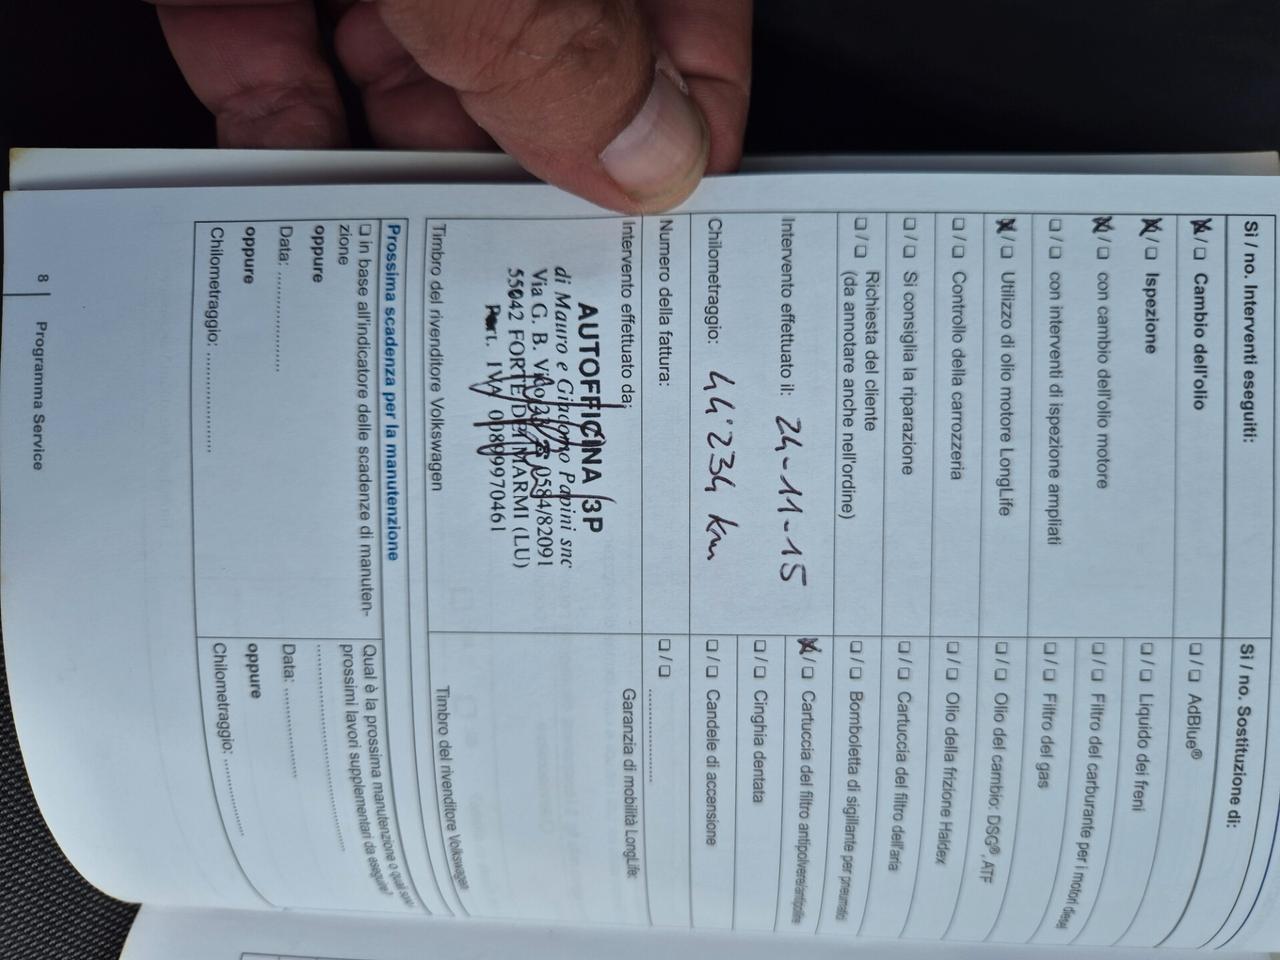 Sì / no. Interventi eseguiti:
☒ / ❑ Cambio dell'olio
☒ / ❑ Ispezione
☒ / ❑ con cambio dell'olio motore
❑ / ❑ con interventi di ispezione ampliati
☒ / ❑ Utilizzo di olio motore LongLife
❑ / ❑ Controllo della carrozzeria
❑ / ❑ Si consiglia la riparazione
❑ / ❑ Richiesta del cliente
(da annotare anche nell'ordine)
Intervento effettuato il: 24-11-15
Chilometraggio: 44'234 km
Numero della fattura:
Intervento effettuato da:
AUTOFFICINA 3P
di Mauro e Giacomo Papini snc
Via G. B. Vico 0584/82091
55042 FORTE DEI MARMI (LU)
Part. IVA 00899970461
Timbro del rivenditore Volkswagen
Sì / no. Sostituzione di:
❑ / ❑ AdBlue®
❑ / ❑ Liquido dei freni
❑ / ❑ Filtro del carburante per i motori diesel
❑ / ❑ Filtro del gas
❑ / ❑ Olio del cambio: DSG®, ATF
❑ / ❑ Olio della frizione Haldex
❑ / ❑ Cartuccia del filtro dell'aria
❑ / ❑ Bomboletta di sigillante per pneumatici
☒ / ❑ Cartuccia del filtro antipolvere/antipolline
❑ / ❑ Cinghia dentata
❑ / ❑ Candele di accensione
❑ / ❑ ....................
Garanzia di mobilità LongLife:
Timbro del rivenditore Volkswagen
Prossima scadenza per la manutenzione
❑ in base all'indicatore delle scadenze di manuten-
zione
oppure
Data: ....................
oppure
Chilometraggio: ....................
Qual è la prossima manutenzione o quali sono i
prossimi lavori supplementari da eseguire?
........................................
Data: ....................
oppure
Chilometraggio: ....................
8 Programma Service